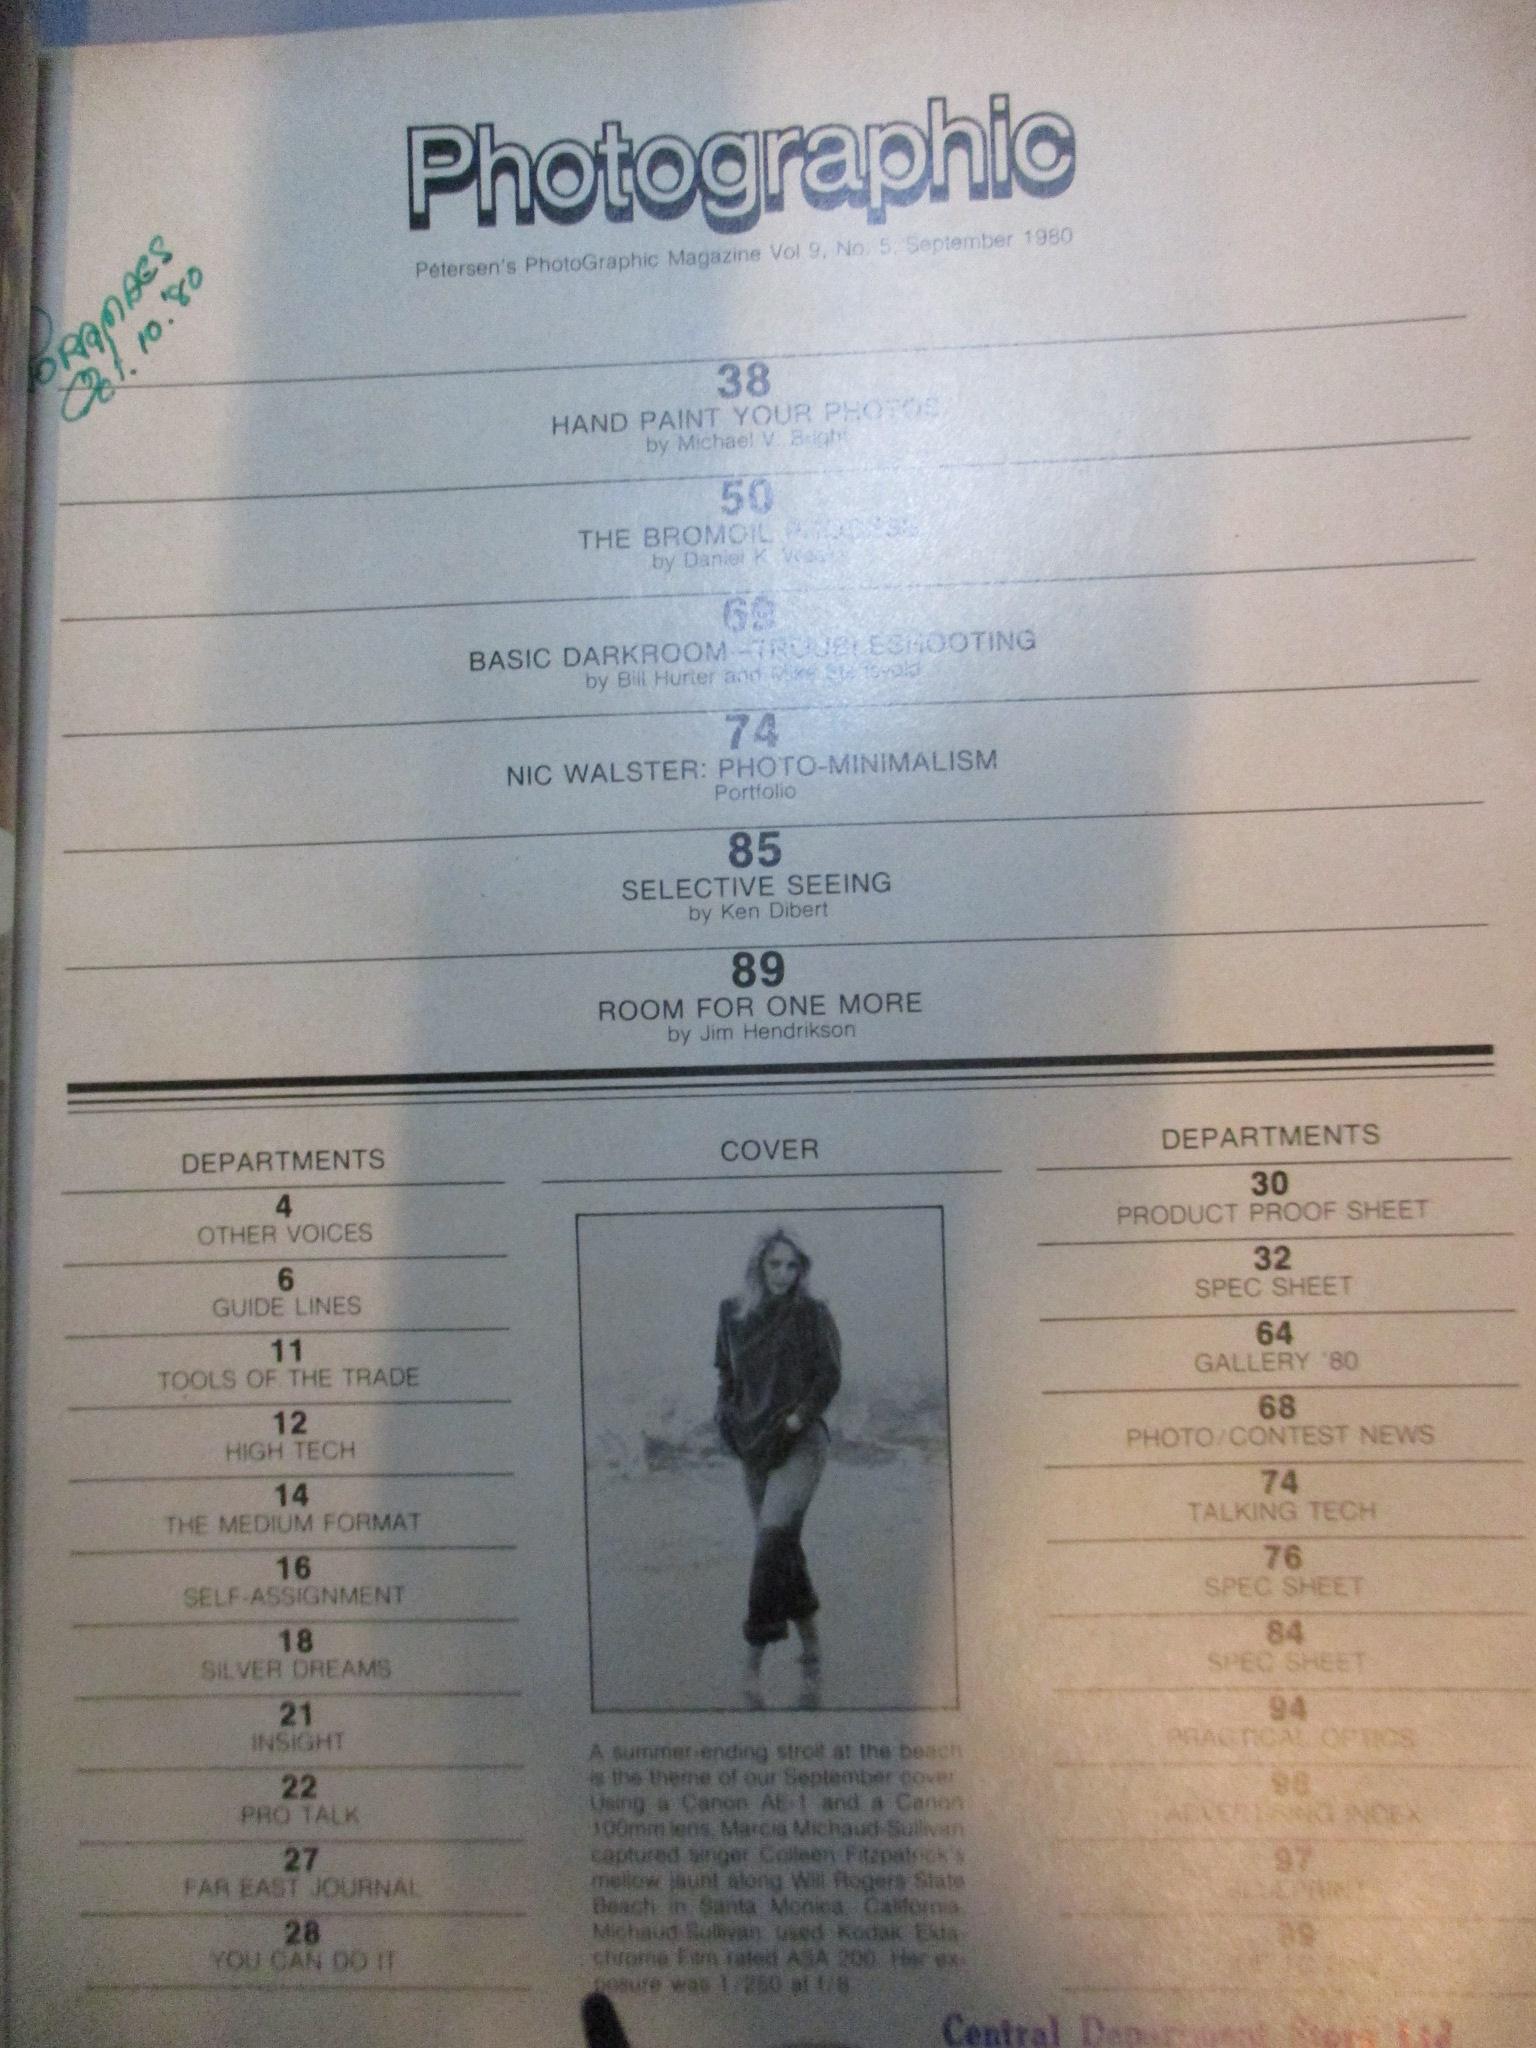 Photographic
Petersen's PhotoGraphic Magazine Vol 9, No. 5, September 1980
10.'80
38
HAND PAINT YOUR PHOTOS
by Michael V. Bright
50
THE BROMOIL PROCESS
by Daniel K.
69
BASIC DARKROOM—TROUBLESHOOTING
by Bill Hurter and Mike
74
NIC WALSTER: PHOTO-MINIMALISM
Portfolio
85
SELECTIVE SEEING
by Ken Dibert
89
ROOM FOR ONE MORE
by Jim Hendrikson
DEPARTMENTS
4
OTHER VOICES
6
GUIDE LINES
11
TOOLS OF THE TRADE
12
HIGH TECH
14
THE MEDIUM FORMAT
16
SELF-ASSIGNMENT
18
SILVER DREAMS
21
INSIGHT
22
PRO TALK
27
FAR EAST JOURNAL
28
YOU CAN DO IT
COVER
A summer-ending stroll at the beach
is the theme of our September cover.
Using a Canon AE-1 and a Canon
100mm lens, Marcia Michaud-Sullivan
captured singer Colleen Fitzpatrick's
mellow jaunt along Will Rogers State
Beach in Santa Monica, California.
Michaud-Sullivan used Kodak Ekta-
chrome Film rated ASA 200. Her ex-
posure was 1/250 at f/8.
DEPARTMENTS
30
PRODUCT PROOF SHEET
32
SPEC SHEET
64
GALLERY '80
68
PHOTO/CONTEST NEWS
74
TALKING TECH
76
SPEC SHEET
84
SPEC SHEET
94
PRACTICAL OPTICS
ADVERTISING INDEX
97
Central Department Store Ltd